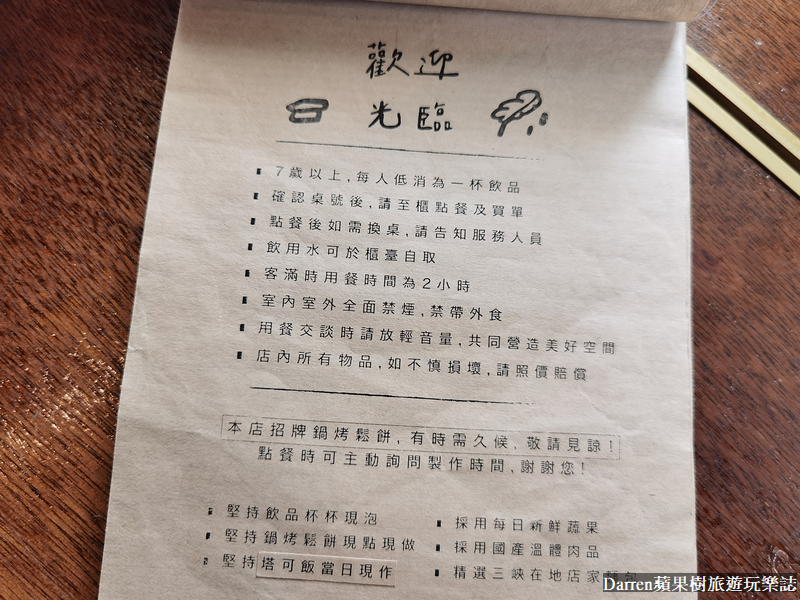 歡迎
光臨
7歲以上,每人低消為一杯飲品
確認桌號後,請至櫃點餐及買單
點餐後如需換桌,請告知服務人員
飲用水可於櫃臺自取
客滿時用餐時間為2小時
室內室外全面禁煙,禁帶外食
用餐交談時請放輕音量,共同營造美好空間
店內所有物品,如不慎損壞,請照價賠償
本店招牌鍋烤鬆餅,有時需久候,敬請見諒!
點餐時可主動詢問製作時間,謝謝您!
堅持飲品杯杯現泡
堅持鍋烤鬆餅現點現做
堅持塔可飯當日現作
採用每日新鮮蔬果
採用國產溫體肉品
精選三峽在地店家麵包
Darren蘋果樹旅遊玩樂誌